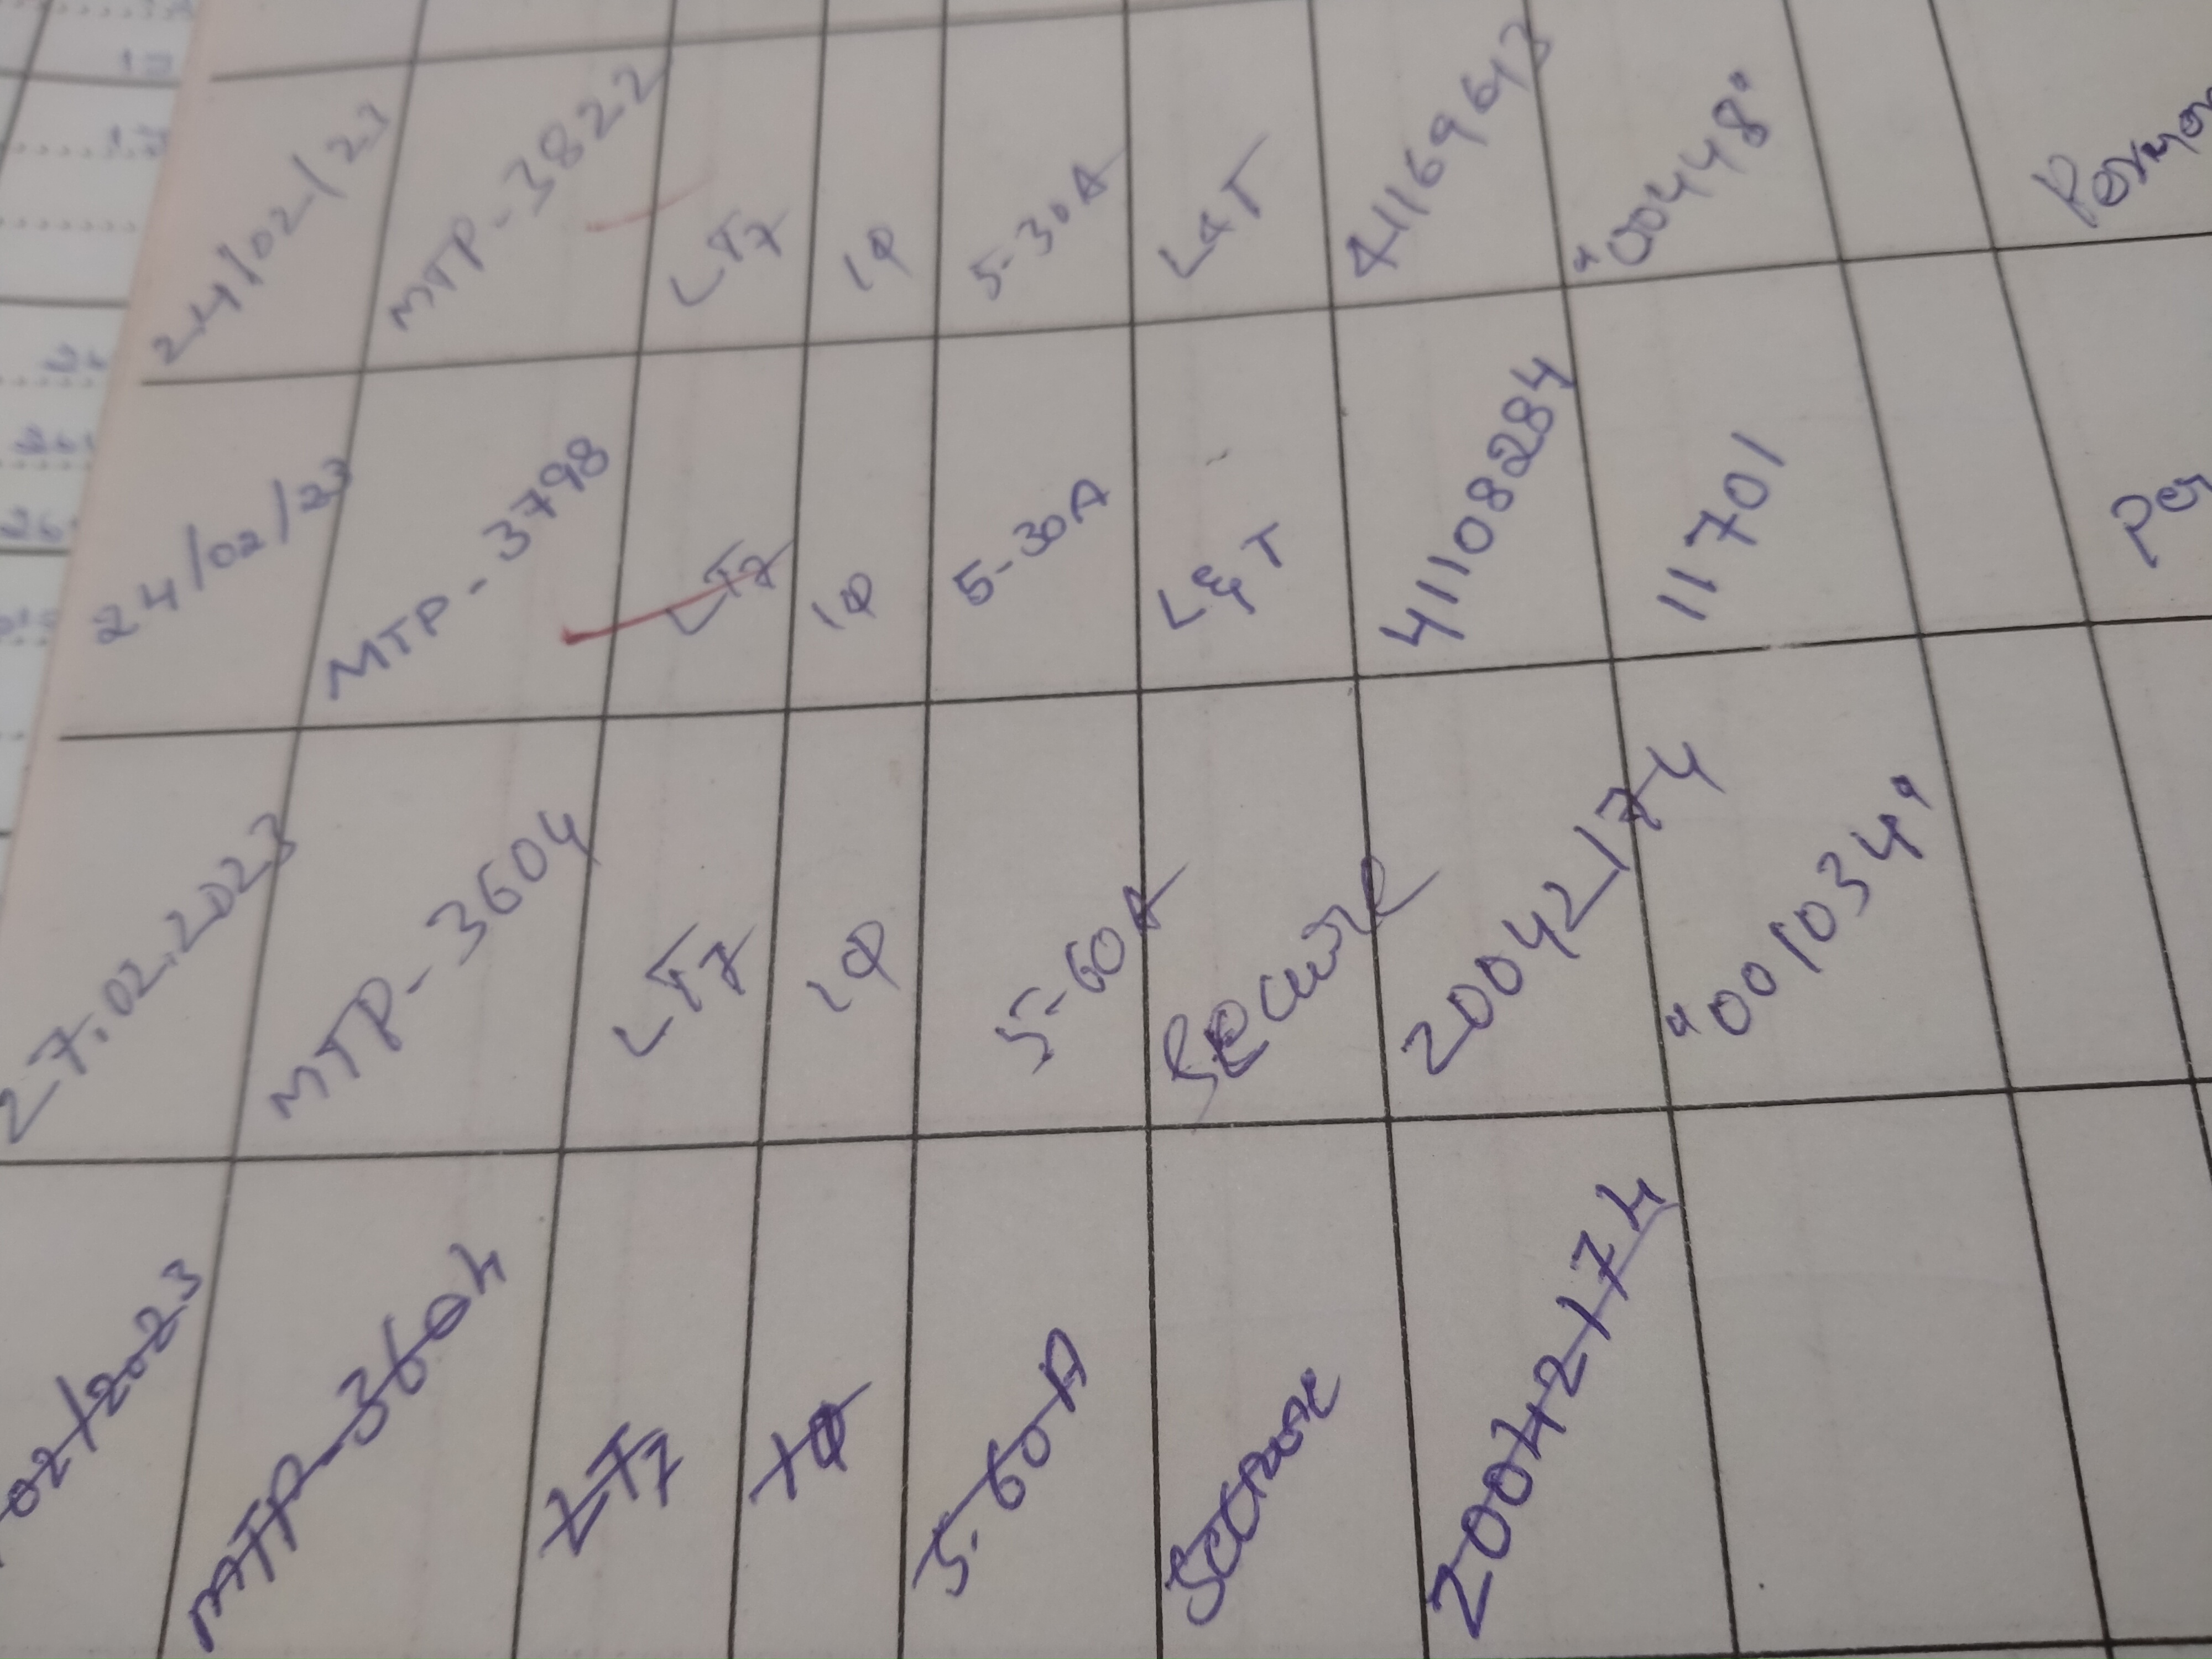 24/02/23 MTP-3822 LT7 1Φ 5-30A L&T 41169643 "00448" Perman
24/02/23 MTP-3798 LT7 1Φ 5-30A L&T 41108284 11701 Per
27.02.2023 MTP-3604 LT7 1Φ 5-60A Secure 20042174 "001034"
02/2023 MTP-3604 LT7 1Φ 5-60A Secure 20042174